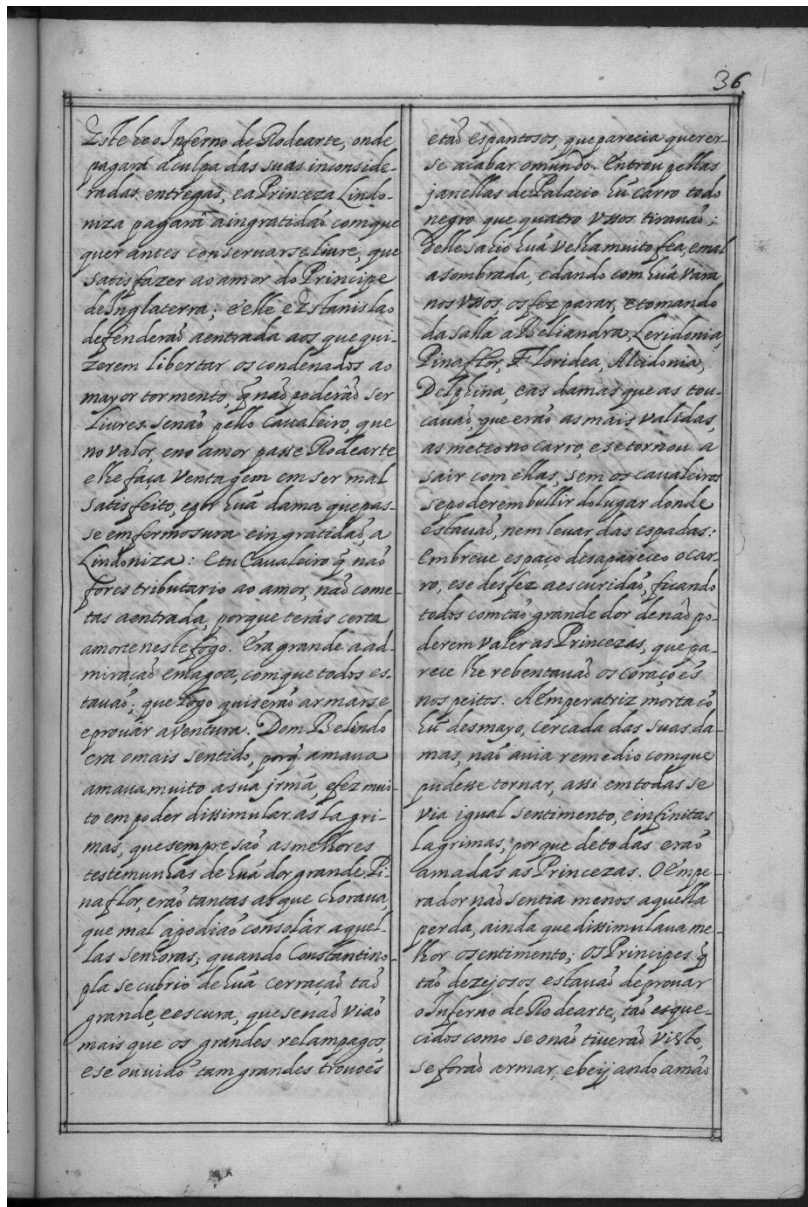 36
Este he o Inferno de Rodearte, onde
pagará a culpa das suas inconside-
radas entregas, e a Princeza Lindo-
niza pagará a ingratidaõ com que
quer antes conservarse livre, que
satisfazer ao amor do Principe
de Inglaterra; e elle e Estanislao
defenderaõ a entrada aos que qui-
zerem libertar os condenados ao
mayor tormento, q̃ naõ poderáõ ser
livres senaõ pello Cavaleiro, que
no valor, e no amor passe Rodearte
e lhe faça ventagem em ser mal
satisfeito, e por huã dama que pas-
se em fermosura e ingratidaõ, a
Lindoniza: E tu Cavaleiro q̃ naõ
fores tributario ao amor, naõ come-
tas a entrada, porque terás certa
a morte neste fogo. Era grande a ad-
miraçaõ em agoa, com que todos es-
tavaõ; que logo quiseraõ armarse,
e provar aventura. Dom Belindo
era o mais sentido, porq̃ amava
amava muito a sua jrmã, e fez mui-
to em poder dissimular as lagri-
mas, que sempre saõ as melhores
testemunhas de huã dor grande. Pi-
naflor, eraõ tantas as que chorava,
que mal a podiaõ consolar aquel-
las senhoras; quando Constantino-
pla se cubrio de huã cerraçaõ taõ
grande, e escura, que se naõ viaõ
mais que os grandes relampagos,
e se ouviaõ tam grandes trovoẽs
e taõ espantosos, que parecia querer-
se acabar o mundo. Entrou pellas
janellas de Palacio hũ carro todo
negro que quatro Vssos tiravaõ;
delle sahio huã velha muito fea, e mal
asombrada, e dando com huã vara
nos Vssos, os fez parar, e tomando
da salla a Beliandra, Leridonia,
Pinaflor, Floridea, Alcidonia,
Delphina, e as damas que as tou-
cavaõ, que eraõ as mais validas,
as meteo no carro, e se tornou a
sair com ellas, sem os cavaleiros
se poderem bullir do lugar donde
estavaõ, nem levar das espadas:
Em breve espaço desapareceo o car-
ro, e se desfez a escuridaõ, ficando
todos com taõ grande dor de naõ po-
derem valer as Princezas, que pa-
rece lhe rebentavaõ os coraçoẽs
nos peitos. A Emperatriz morta cõ
hũ desmayo, cercada das suas da-
mas, naõ avia remedio com que
pudesse tornar, assi em todas se
via igual sentimento, e infinitas
lagrimas, porque de todas eraõ
amadas as Princezas. O Empe-
rador naõ sentia menos aquella
perda, ainda que dissimulava me-
lhor o sentimento; Os Principes q̃
taõ dezejosos estavaõ de provar
o Inferno de Rodearte, taõ esque-
cidos como se o naõ tiveraõ visto,
se foraõ armar, e beijando a maõ